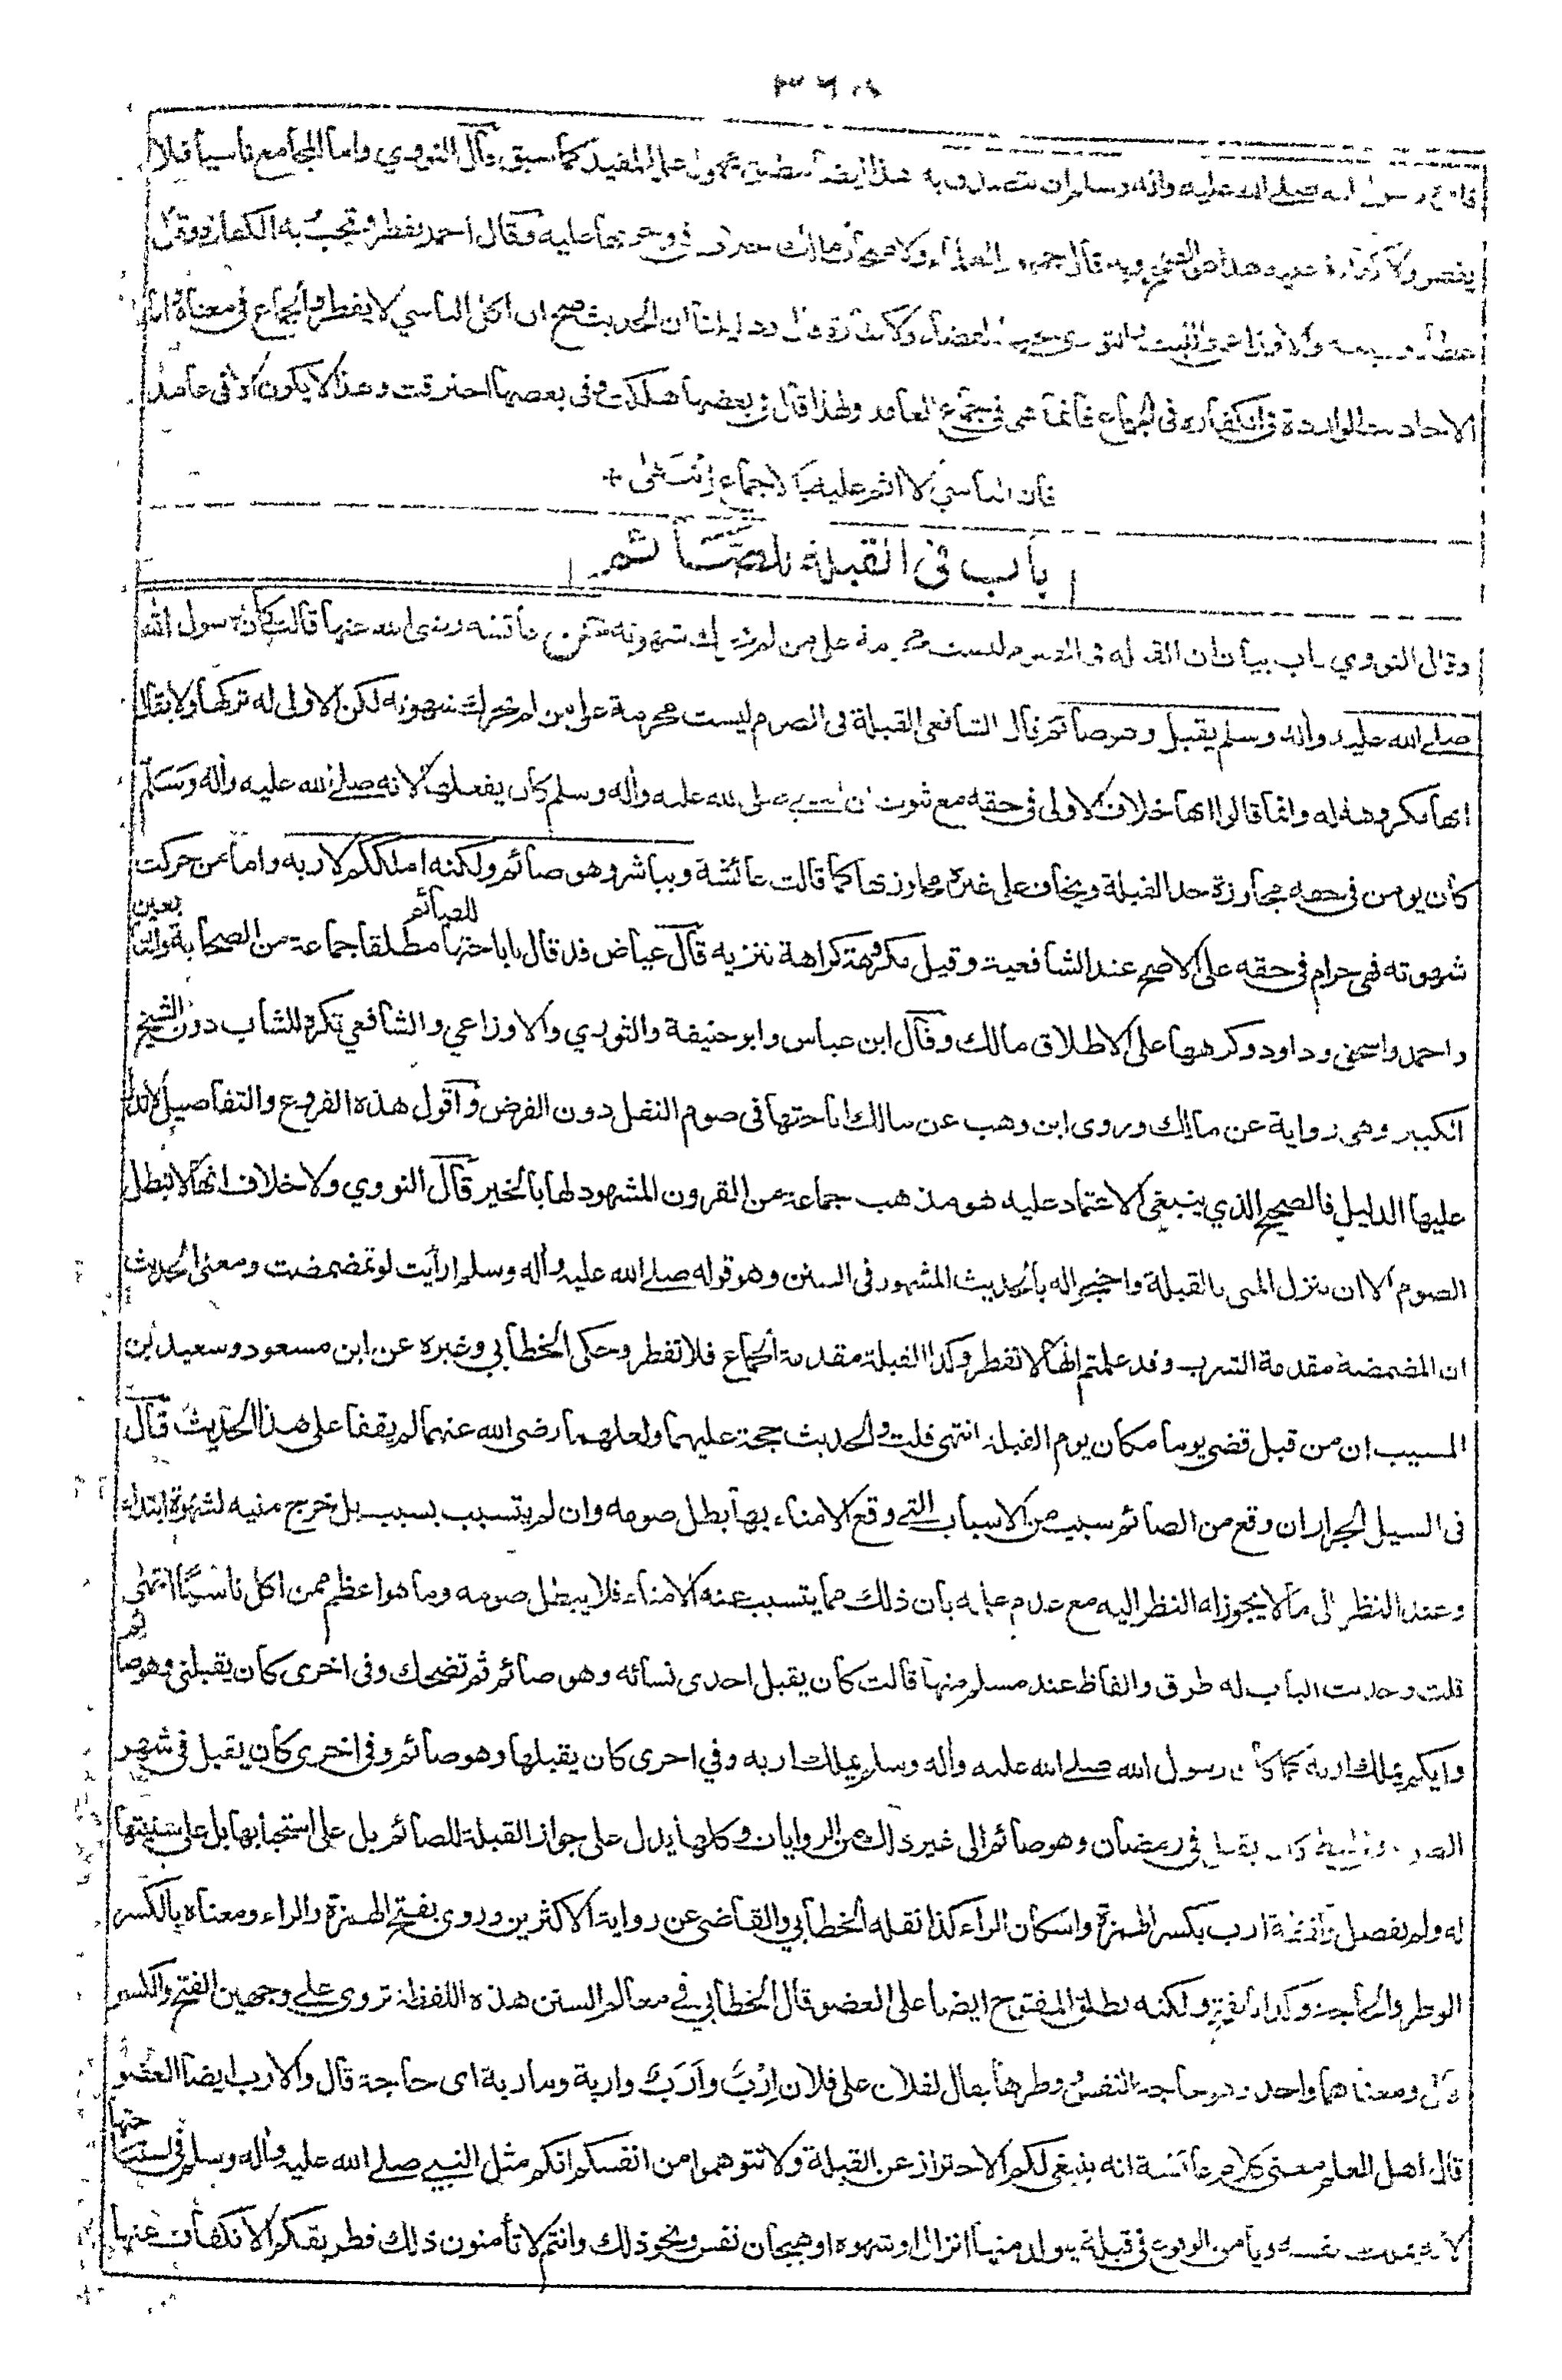 ٣٦٠
فامره رسول الله صلى الله عليه واله وسلم ان يتصدق به هذا ايضا مطلق محمول على المقيد كما سبق قال النووي واما المجامع ناسيا فلا
يفطر ولا كفارة عليه هذا هو الصحيح وبه قال جمهور العلماء ولاصحاب مالك خلاف في وجوبها عليه وقال احمد يفطر وتجب به الكفارة وقال
عطاء وربيعة والاوزاعي والليث والثوري يجب القضاء ولا كفارة دليلنا ان الحديث صح ان اكل الناسي لا يفطر والجماع في معناه واما
الاحاديث الواردة في الكفارة في الجماع فانما هي في جماع العامد ولهذا قال في بعضها هلكت وفي بعضها احترقت وهذا لا يكون الا في عامد
فان الناسي لا اثم عليه بالاجماع انتهى +
باب في القبلة للصائم
وقال النووي باب بيان ان القبلة في الصوم ليست محرمة على من لم تحرك شهوته عن عائشة رضى الله عنها قالت كان رسول الله
صلے الله عليه واله وسلم يقبل وهو صائم قال الشافعي القبلة في الصوم ليست محرمة على من لم تحرك شهوته لكن الاولى له تركها ولا يقال
انها مكروهة له وانما قالوا انها خلاف الاولى في حقه مع ثبوت ان النبي صلى الله عليه واله وسلم كان يفعلها لانه صلے الله عليه واله وسلم
كان يومن في حقه مجاوزة حد القبلة ويخاف على غيره مجاوزتها كما قالت عائشة ويباشر وهو صائم ولكنه املككم لاربه واما من حركت
شهوته فهي حرام في حقه على الاصح عند الشافعية وقيل مكروهة كراهة تنزيه قال عياض قد قال باباحتها للصائم مطلقا جماعة من الصحابة والتابعين
واحمد واسحق وداود وكرهها على الاطلاق مالك وقال ابن عباس وابو حنيفة والثوري والاوزاعي والشافعي تكره للشاب دون الشيخ
الكبير وهي رواية عن مالك وروى ابن وهب عن مالك اباحتها في صوم النفل دون الفرض واقول هذه الفروع والتفاصيل لا يدل
عليها الدليل فالصحيح الذي ينبغي الاعتماد عليه هو مذهب جماعة من القرون المشهود لها بالخير قال النووي ولا خلاف انها لا تبطل
الصوم الا ان ينزل المنى بالقبلة واحتجوا له بالحديث المشهور في السنن وهو قوله صلے الله عليه واله وسلم ارأيت لو تمضمضت ومعنى الحديث
ان المضمضة مقدمة الشرب وقد علمتم انها لا تفطر وكذا القبلة مقدمة الجماع فلا تفطر وحكى الخطابي وغيره عن ابن مسعود وسعيد بن
المسيب ان من قبل قضى يوما مكان يوم القبلة انتهى قلت والحديث حجة عليهما ولعلهما رضى الله عنهما لم يقفا على هذا الحديث قال
في السيل الجرار ان وقع من الصائم سبب من الاسباب التي وقع الامناء بها بطل صومه وان لم يتسبب بسبب بل خرج منيه لشهوة ابتداء
وعند النظر الى ما لا يجوز له النظر اليه مع عدم علمه بان ذلك مما يتسبب عنه الامناء فلا يبطل صومه وما هو اعظم ممن اكل ناسيا انتهى
قلت وحديث الباب له طرق والفاظ عند مسلم منها قالت كان يقبل احدى نسائه وهو صائم ثم تضحك وفي اخرى كان يقبلني وهو صائم
وايكم يملك اربه كما كان رسول الله صلے الله عليه واله وسلم يملك اربه وفي اخرى كان يقبلها وهو صائم وفي اخرى كان يقبل في شهر
الصوم وفي لفظ كان يقبل في رمضان وهو صائم الى غير ذلك من الروايات وكلها يدل على جواز القبلة للصائم بل على استحبابها بل على سنيتها
له ولم يفصل ولفظة ارب بكسر الهمزة واسكان الراء كذا نقله الخطابي والقاضي عن رواية الاكثرين وروى بفتح الهمزة والراء ومعناه بالكسر
الوطر والحاجة وكذا بالفتح ولكنه يطلق المفتوح ايضا على العضو قال الخطابي في معالم السنن هذه اللفظة تروى على وجهين الفتح والكسر
قال ومعناهما واحد وهو حاجة النفس وطرها يقال لفلان على فلان اِرْبٌ واَرَبٌ واربة وماربة اى حاجة قال والارب ايضا العضو
قال اهل العلم معنى كلام عائشة انه ينبغى لكم الاحتراز عن القبلة ولا تتوهموا من انفسكم انكم مثل النبي صلے الله عليه واله وسلم في استباحتها
لانه يملك نفسه ويأمن الوقوع في قبلة يتولد منها انزال او شهوة او هيجان نفس ونحو ذلك وانتم لا تأمنون ذلك فطريقكم الانكفاف عنها